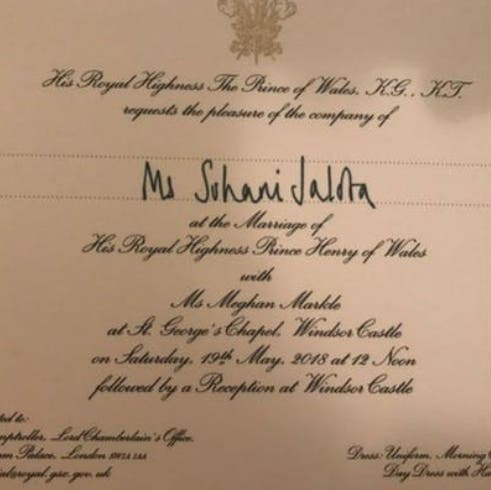 His Royal Highness The Prince of Wales, K.G., K.T.
requests the pleasure of the company of
Ms Suhani Jalota
at the Marriage of
His Royal Highness Prince Henry of Wales
with
Ms Meghan Markle
at St. George's Chapel, Windsor Castle
on Saturday, 19th May, 2018 at 12 Noon
followed by a Reception at Windsor Castle
to:
Lord Chamberlain's Office,
Palace, London SW1A 1AA
royal.gsc.gov.uk
Dress: Uniform, Morning
Day Dress with